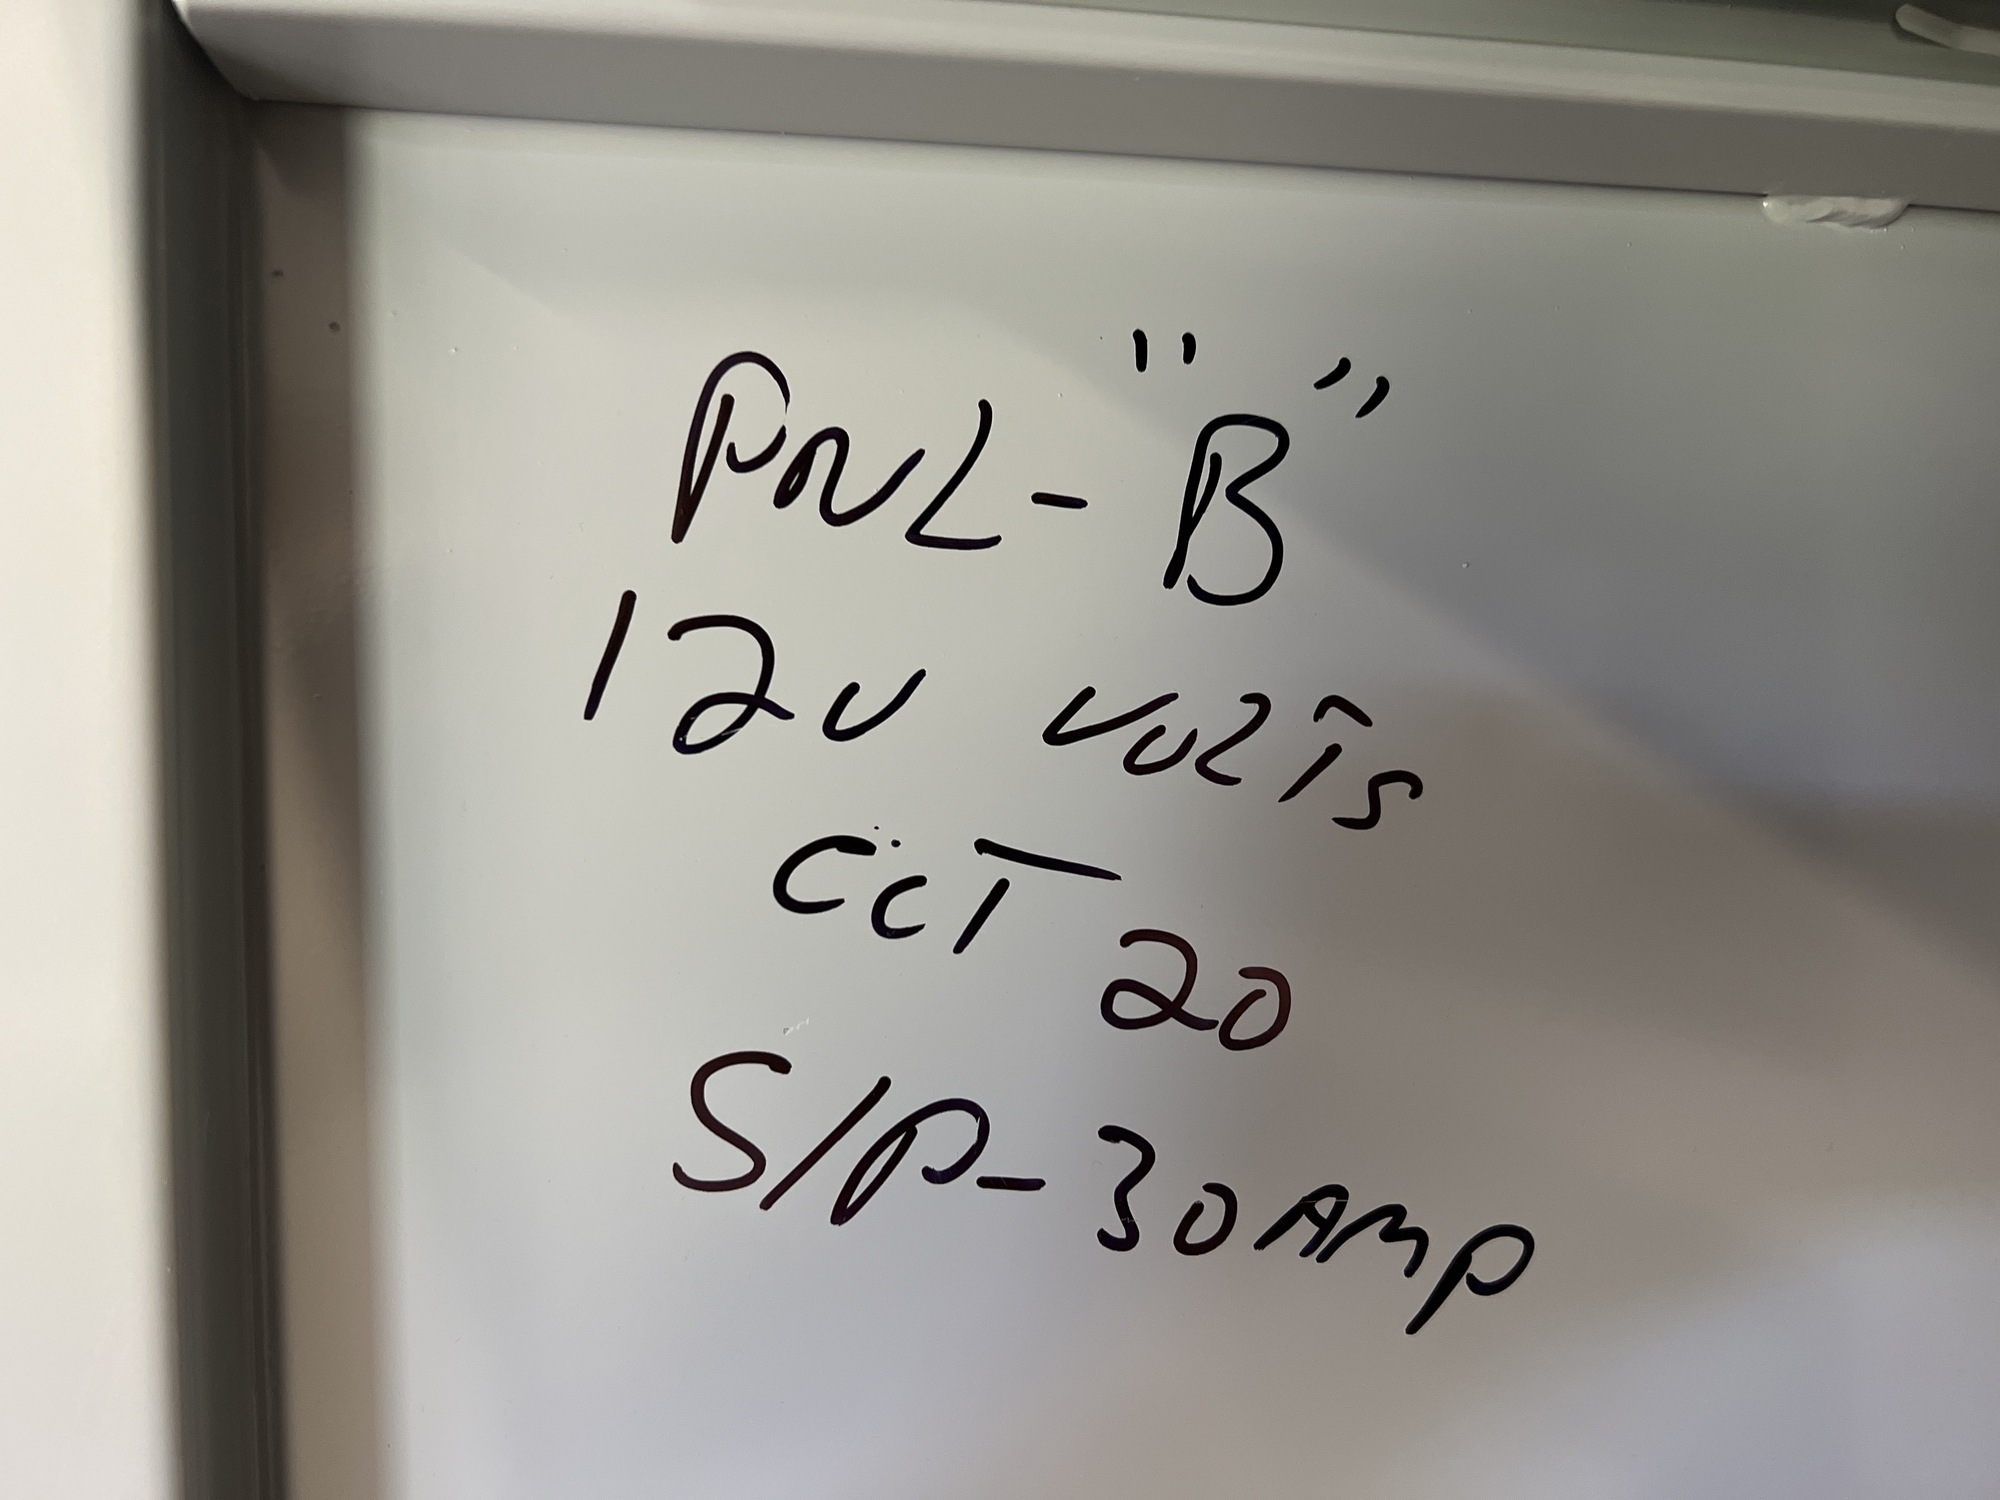 PNL-"B"
120 VOLTS
CCT 20
S/P-30AMP